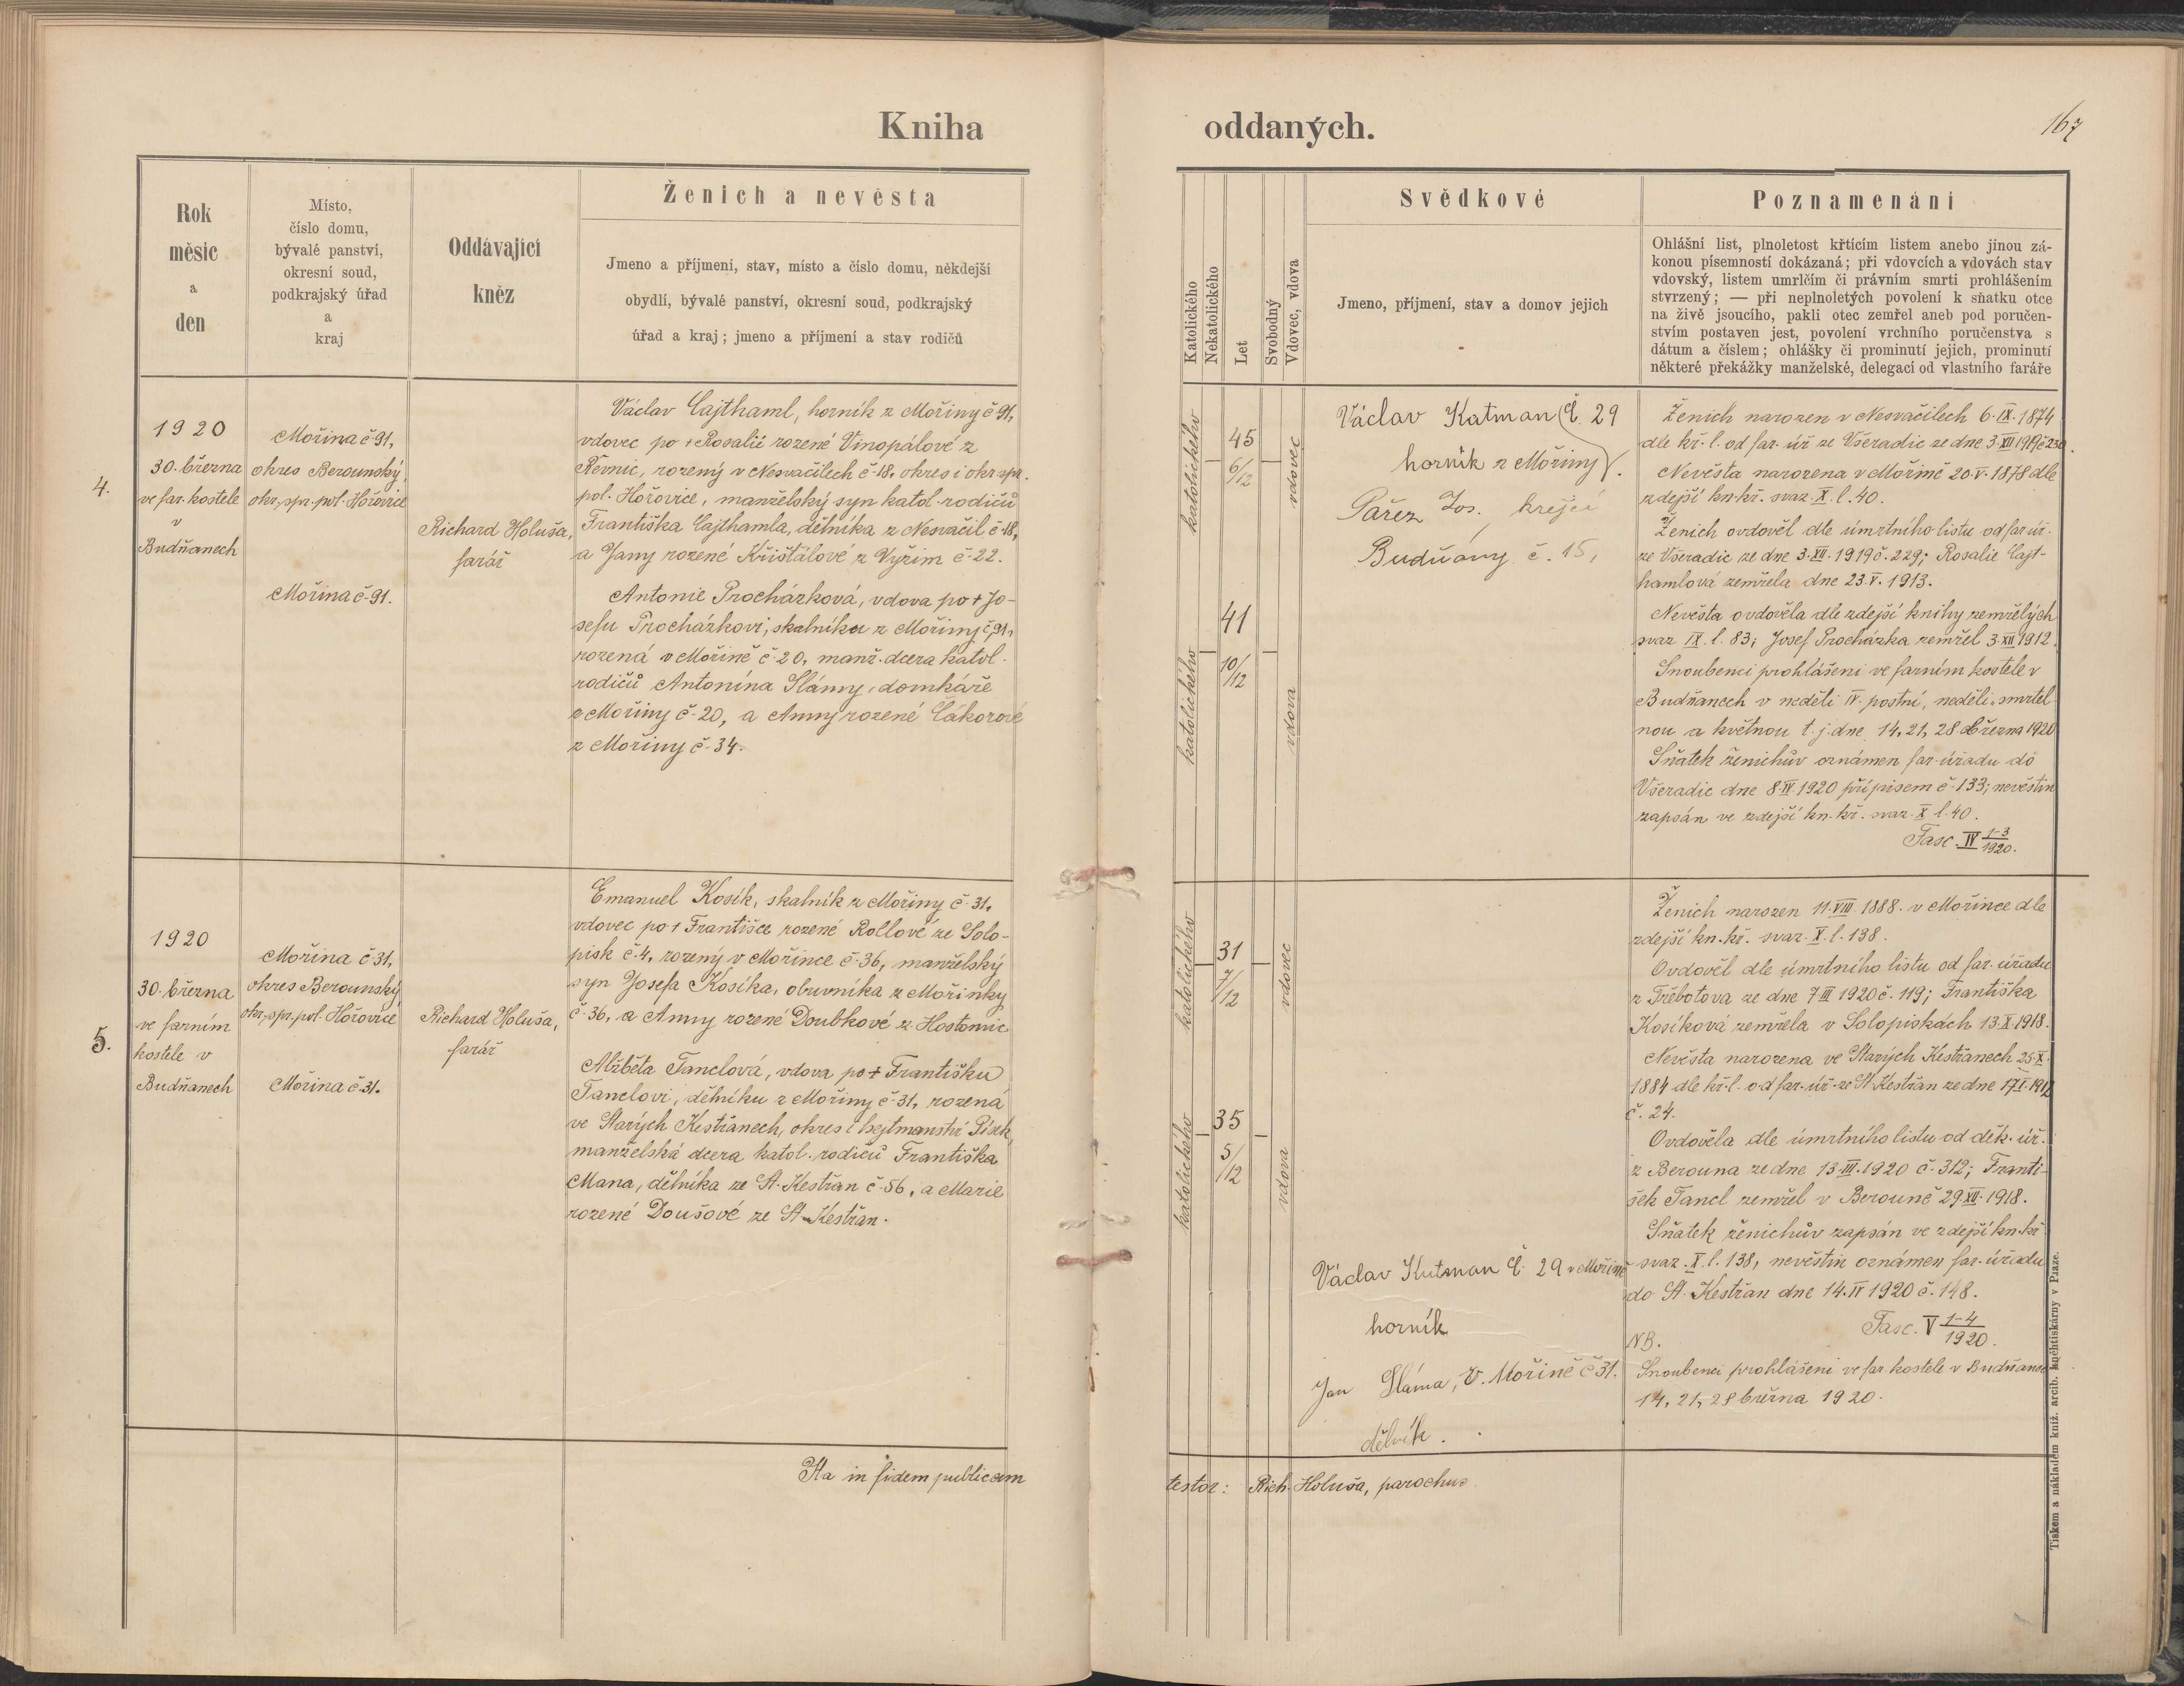 Kniha oddaných.
167
Rok
měsíc
a
den
Místo,
číslo domu,
bývalé panství,
okresní soud,
podkrajský úřad
a
kraj
Oddávající
kněz
Ženich a nevěsta
Jmeno a příjmení, stav, místo a číslo domu, někdejší
obydlí, bývalé panství, okresní soud, podkrajský
úřad a kraj; jmeno a příjmení a stav rodičů
Katolického
Nekatolického
Let
Svobodný
Vdovec, vdova
Svědkové
Jmeno, příjmení, stav a domov jejich
Poznamenání
Ohlášní list, plnoletost křtícím listem anebo jinou zá-
konou písemností dokázaná; při vdovcích a vdovách stav
vdovský, listem umrlčím či právním smrti prohlášením
stvrzený; — při neplnoletých povolení k sňatku otce
na živě jsoucího, pakli otec zemřel aneb pod poručen-
stvím postaven jest, povolení vrchního poručenstva s
dátum a číslem; ohlášky či prominutí jejich, prominutí
některé překážky manželské, delegací od vlastního faráře
4.
1920
30. března
ve far. kostele
v
Budňanech
Mořina č. 91,
okres Berounský,
okr. spr. pol. Hořovice
Mořina č. 91.
Richard Holuša,
farář
Václav Cajthaml, horník z Mořiny č. 91,
vdovec po + Rosalii rozené Vinopálové z
Řevnic, rozený v Nesvačilech č. 18, okres i okr. spr.
pol. Hořovice, manželský syn katol. rodičů
Františka Cajthamla, dělníka z Nesvačil č. 18,
a Jany rozené Křišťálové z Vyžim č. 22.
Antonie Procházková, vdova po + Jo-
sefu Procházkovi, skalníku z Mořiny č. 91,
rozená v Mořině č. 20, manž. dcera katol.
rodičů Antonína Slámy, domkáře
z Mořiny č. 20, a Anny rozené Čákorové
z Mořiny č. 34.
katolického
45
6/12
vdovec
katolického
41
10/12
vdova
Václav Katman Č. 29
horník z Mořiny.
Pařez Jos. krejčí
Budňány č. 15,
Ženich narozen v Nesvačilech 6. IX. 1874
dle kř. l. od far. úř. ze Všeradic ze dne 3. XII 1919 č. 230.
Nevěsta narozena v Mořině 20. V. 1878 dle
zdejší kn. kř. svaz. X. l. 40.
Ženich ovdověl dle úmrtního listu od far. úř.
ze Všeradic ze dne 3. XII. 1919 č. 229; Rosalie Cajt-
hamlová zemřela dne 23. V. 1913.
Nevěsta ovdověla dle zdejší knihy zemřelých
svaz. IX. l. 83; Josef Procházka zemřel 3. XII 1912.
Snoubenci prohlášeni ve farním kostele v
Budňanech v neděli IV. postní, neděli smrtel-
nou a květnou t. j. dne 14, 21, 28. března 1920
Sňatek ženichův oznámen far. úřadu do
Všeradic dne 8. IV. 1920 přípisem č. 133; nevěstin
zapsán ve zdejší kn. kř. svaz. X l. 40.
Fasc. IV 1-3/1920.
5.
1920
30. března
ve farním
kostele v
Budňanech
Mořina č. 31,
okres Berounský,
okr. spr. pol. Hořovice
Mořina č. 31.
Richard Holuša,
farář
Emanuel Kosík, skalník z Mořiny č. 31,
vdovec po + Františce rozené Rollové ze Solo-
pisk č. 4, rozený v Mořince č. 36, manželský
syn Josefa Kosíka, obuvníka z Mořinky
č. 36, a Anny rozené Doubkové z Hostomic
Alžběta Tanclová, vdova po + Františku
Tanclovi, dělníku z Mořiny č. 31, rozená
ve Starých Kestřanech, okres i hejtmanství Písek,
manželská dcera katol. rodičů Františka
Mana, dělníka ze St. Kestřan č. 56, a Marie
rozené Doušové ze St. Kestřan.
katolického
31
7/12
vdovec
katolického
35
5/12
vdova
Václav Kutman Č. 29 v Mořině
horník
Jan Sláma, v. Mořině č 31.
dělník.
Ženich narozen 11. VIII. 1888. v Mořince dle
zdejší kn. kř. svaz. X. l. 138.
Ovdověl dle úmrtního listu od far. úřadu
z Třebotova ze dne 7 III 1920 č. 119; Františka
Kosíková zemřela v Solopiskách 13. X. 1918.
Nevěsta narozena ve Starých Kestřanech 25. X.
1884 dle kř. l. od far. úř. ze St. Kestřan ze dne 17. I. 1912
č. 24.
Ovdověla dle úmrtního listu od děk. úř.
z Berouna ze dne 13. III. 1920 č. 312; Franti-
šek Tancl zemřel v Berouně 29. XII. 1918.
Sňatek ženichův zapsán ve zdejší kn. kř.
svaz. X. l. 138, nevěstin oznámen far. úřadu
do St. Kestřan dne 14. IV 1920 č. 148.
Fasc. V 1-4/1920.
NB.
Snoubenci prohlášeni ve far. kostele v Budňanech
14, 21, 28 března 1920.
Ita in fidem publicam testor: Rich. Holuša, parochus
Tiskem a nákladem kníž. arcib. knihtiskárny v Praze.